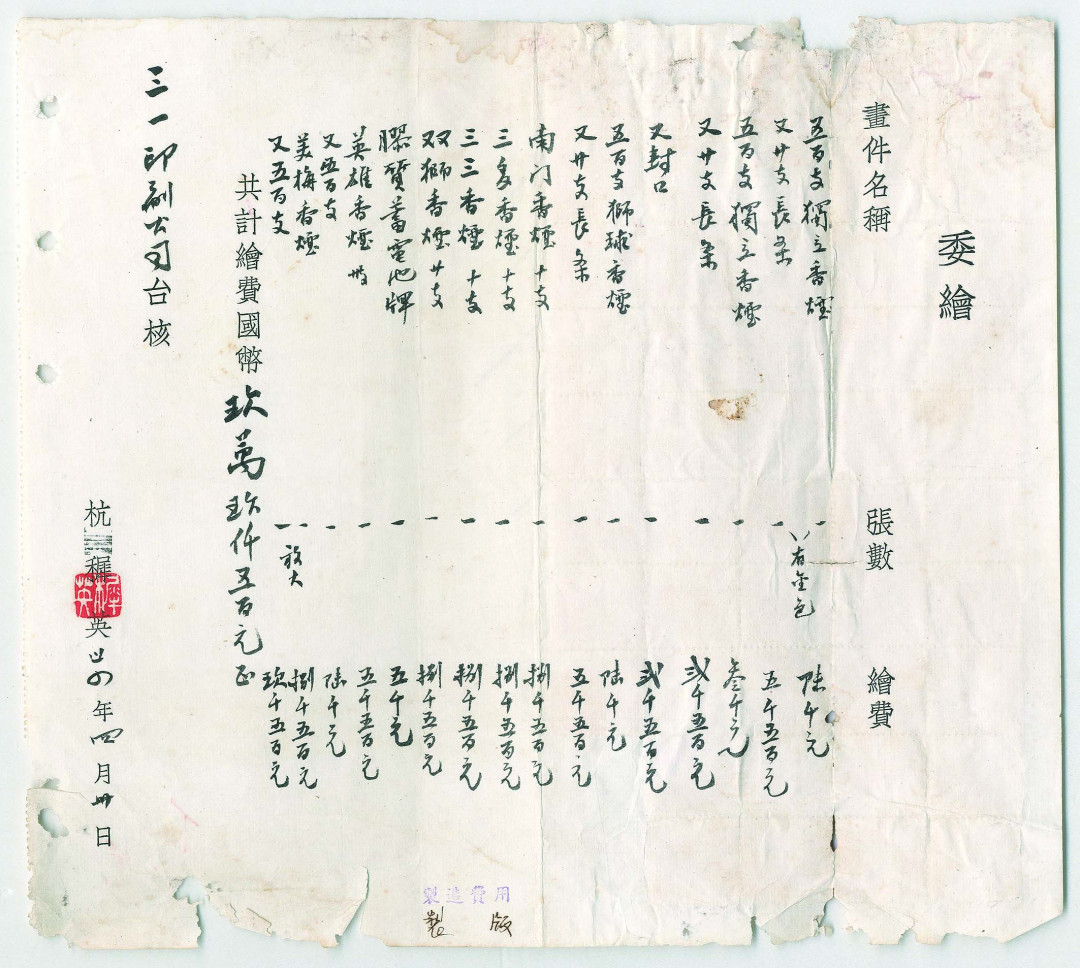 委繪
畫件名稱 張數 繪費
五百支獨立香煙 一 陸千元
又廿支長条 一 有金包 五千五百元
五百支獨立香煙 一 叁千元
又廿支長条 一 弍千五百元
又封口 一 弍千五百元
五百支獅球香煙 一 陸千元
又廿支長条 一 五千五百元
南门香煙十支 一 捌千五百元
三多香煙十支 一 捌千五百元
三三香煙十支 一 捌千五百元
双獅香煙廿支 一 捌千五百元
膠質蓄電池牌 一 五千元
英雄香煙卅 一 五千五百元
又五百支 一 陸千元
美梅香煙 一 捌千五百元
又五百支 一 放大 玖千五百元
共計繪費國幣玖萬玖仟五百元正
三一印刷公司台核
杭穉英 卅四年四月卅日
製造費用
製版